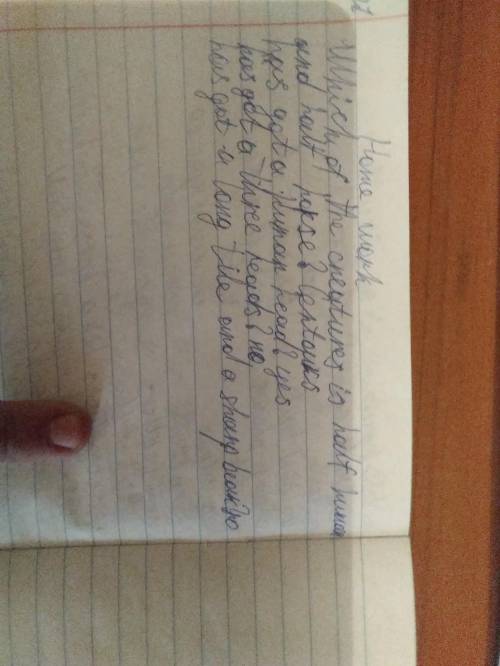 Home work
Which of the creatures is half human
and half horse? Centaurs
has got a human head? yes
has got a three heads? no
has got a long and a sharp beak? no